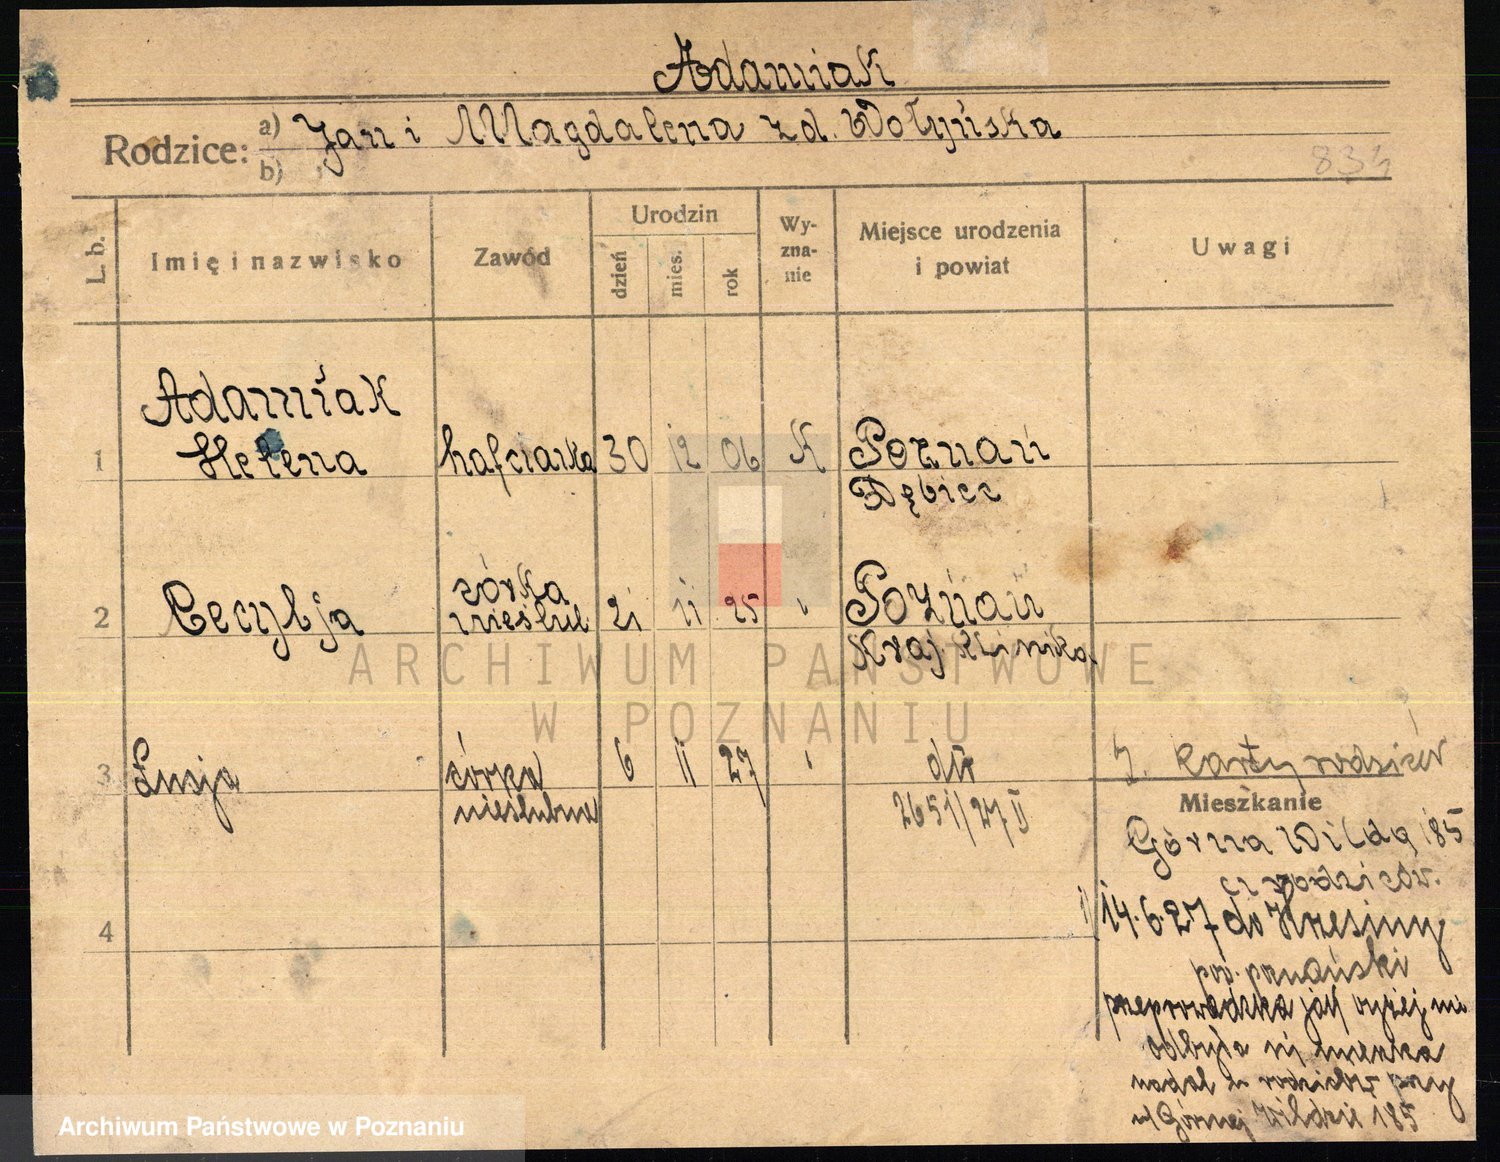 Adamiak
Rodzice: a) Jan i Magdalena z d. Wołyńska
b)
834
L. b.
Imię i nazwisko
Zawód
Urodzin
dzień
mies.
rok
Wy-
zna-
nie
Miejsce urodzenia
i powiat
Uwagi
Adamiak
1 Helena hafciarka 30 12 06 K Poznań
Dębiec
córka
2 Cecylja nieślub 21 11 25 " Poznań
Kraj. Klinika
3 Łucja córka 6 II 27 " dtto z. karty rodziców
nieślubna 2651/27 II
Mieszkanie
Górna Wilda 185
rodziców.
4
14.6.27 do Krzesiny
pow. poznański
przeprowadzka jak wyżej nie
odbyła się mieszka
nadal u rodziców przy
ul Górnej Wildzie 185
ARCHIWUM PAŃSTWOWE
W POZNANIU
Archiwum Państwowe w Poznaniu